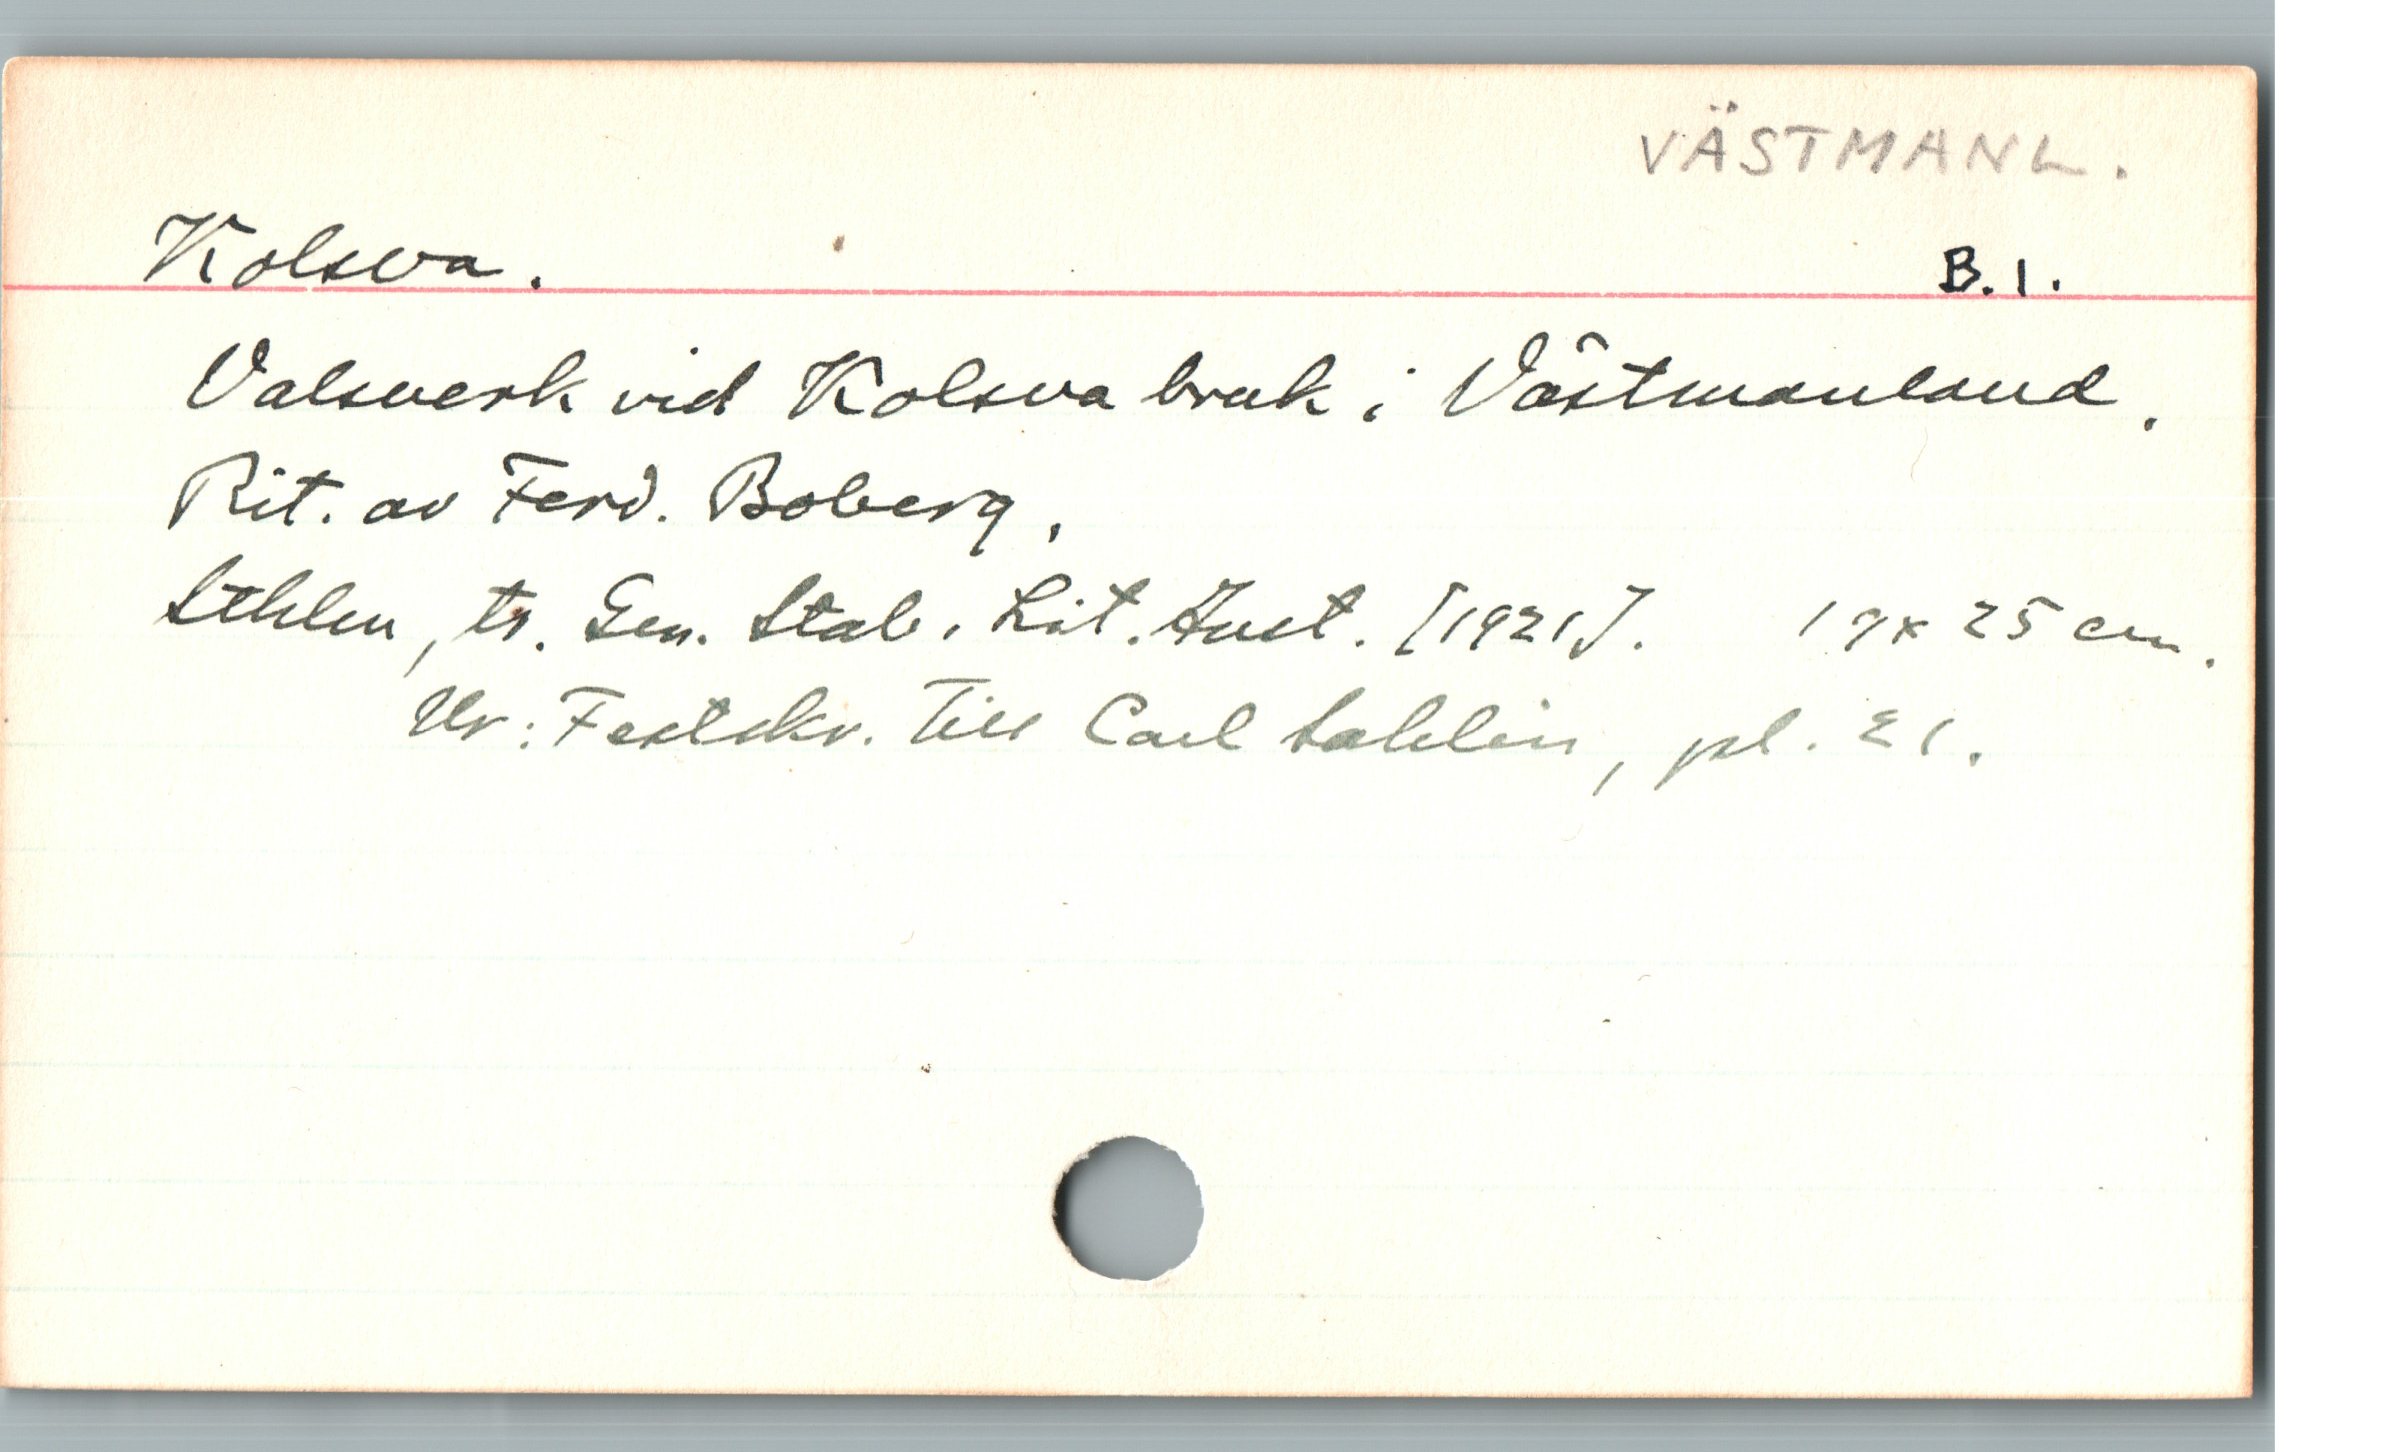 VÄSTMANL.
Kolsva. B.1.
Valsverk vid Kolsva bruk i Västmanland.
Rit. av Ferd. Boberg.
Sthlm, tr. Gen. Stab. Lit. Anst. [1921]. 19x25 cm.
Ur: Festskr. Till Carl Sahlin, pl. 21.